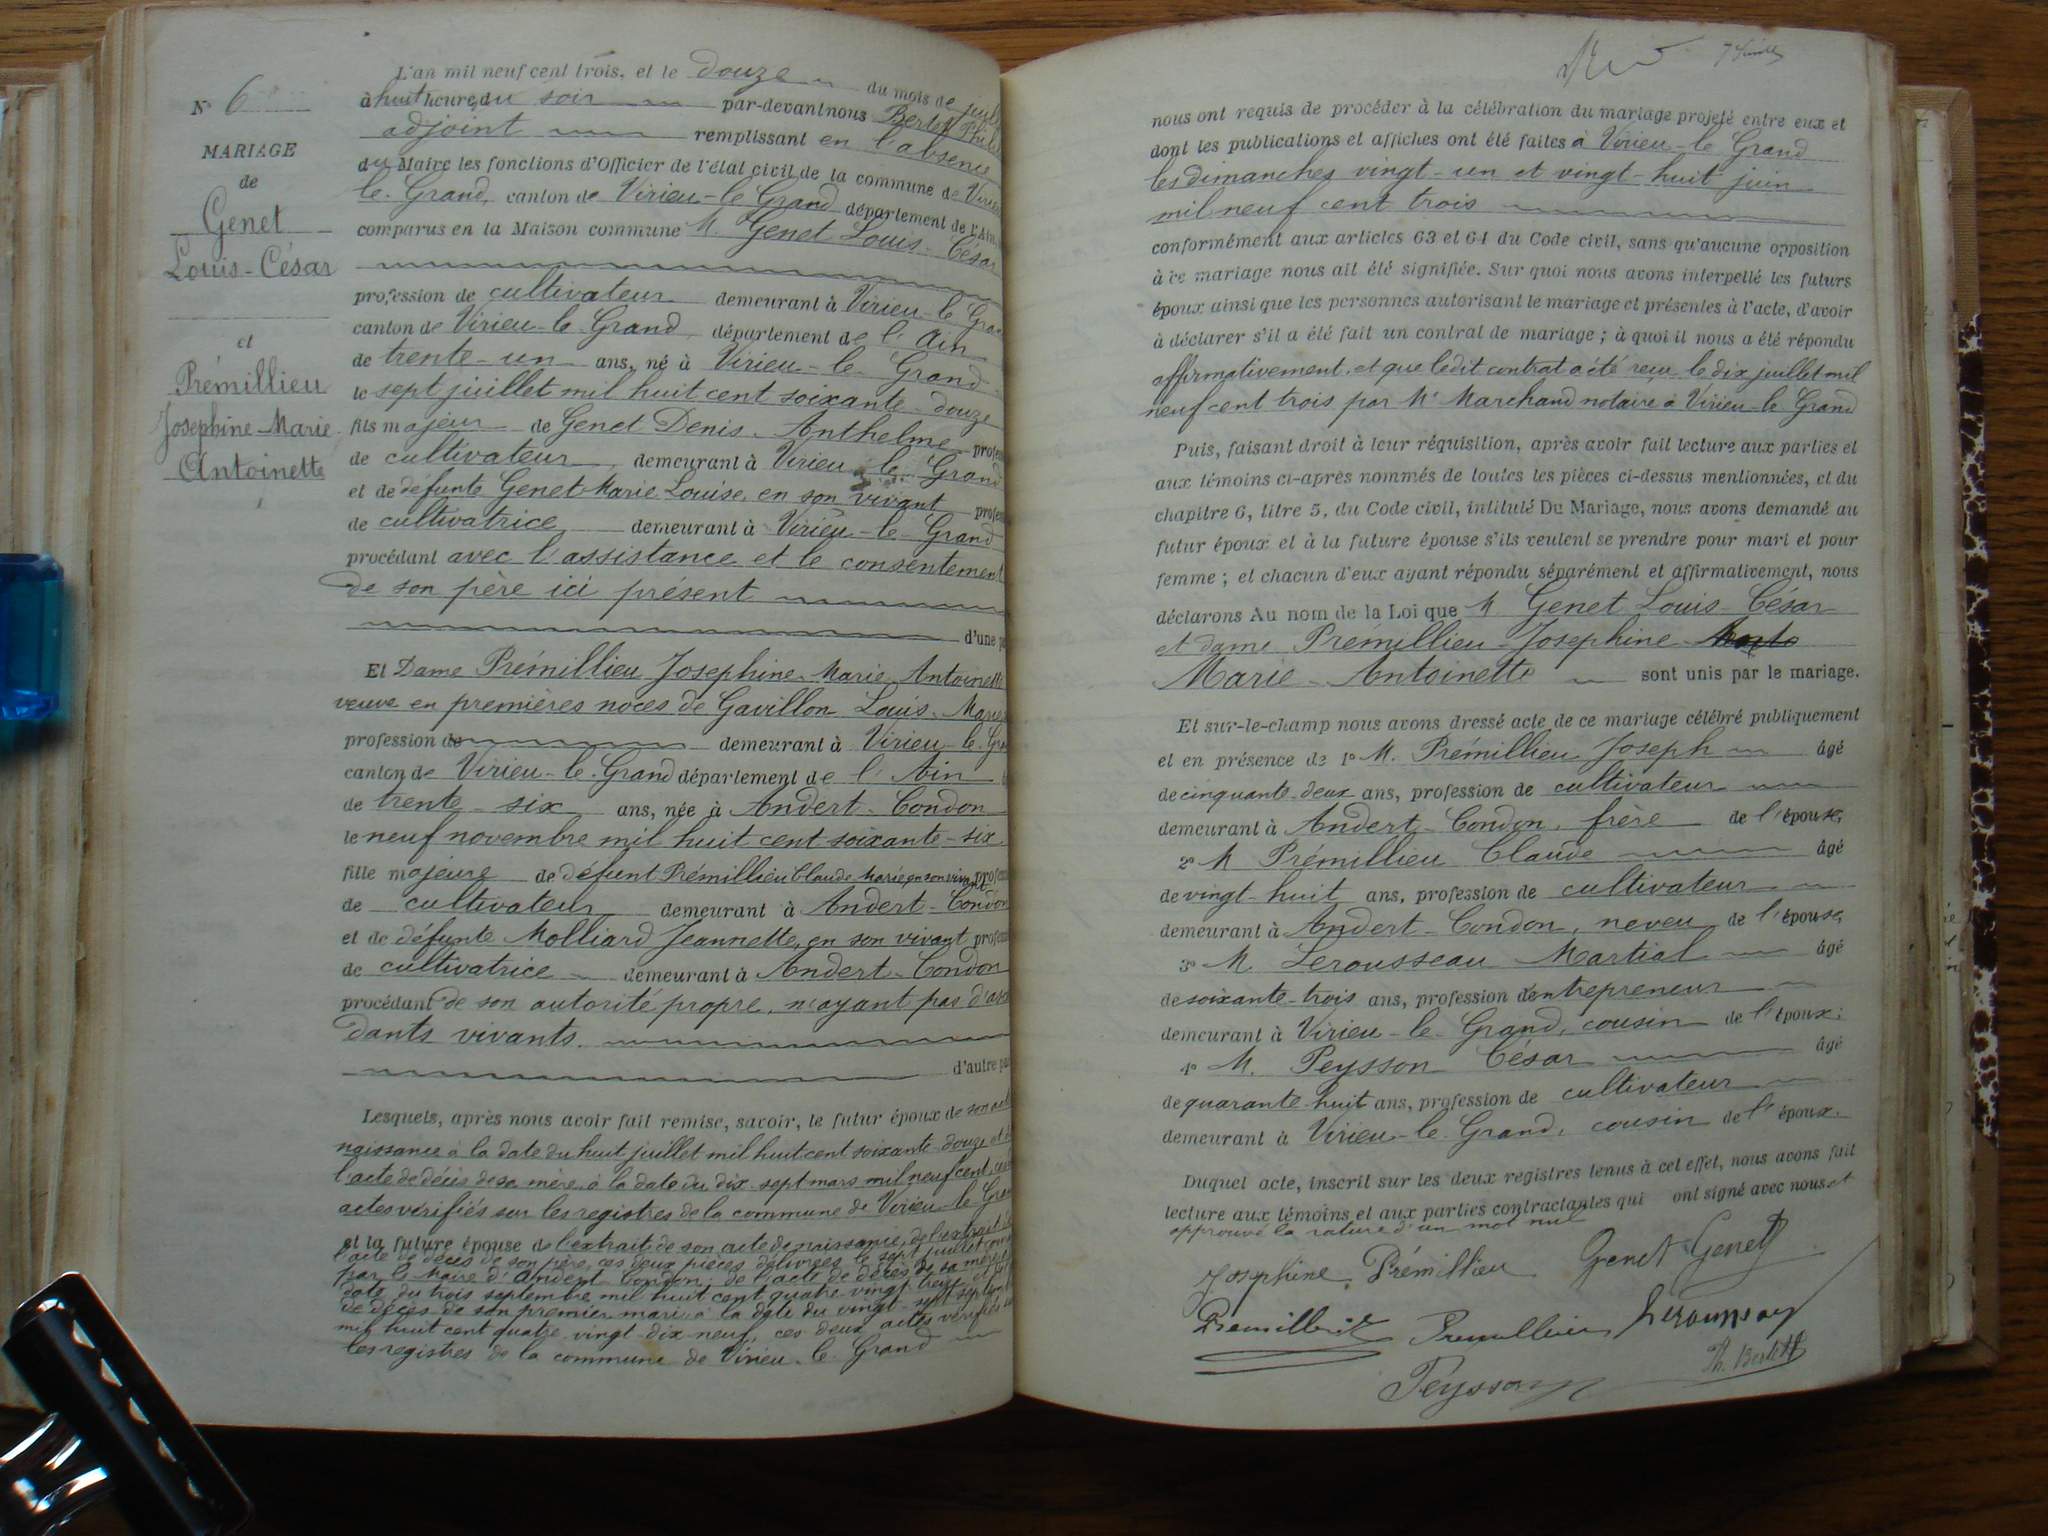 N° 6
MARIAGE
de
Genet
Louis-César
et
Prémillieu
Josephine-Marie
Antoinette
L'an mil neuf cent trois, et le douze du mois de juil
à huit heures du soir par-devant nous
adjoint remplissant en l'absence
du Maire les fonctions d'Officier de l'état civil de la commune de Virieu
le-Grand, canton de Virieu-le-Grand département de l'Ain,
comparus en la Maison commune M. Genet Louis-César
profession de cultivateur demeurant à Virieu-le-Gra
canton de Virieu-le-Grand, département de l'Ain
de trente-un ans, né à Virieu-le-Grand
le sept juillet mil huit cent soixante-douze
fils majeur de Genet Denis-Anthelme profes
de cultivateur, demeurant à Virieu-le-Grand
et de défunte Genet Marie Louise, en son vivant profes
de cultivatrice demeurant à Virieu-le-Grand
procédant avec l'assistance et le consentement
de son père ici présent
d'une pa
Et Dame Prémillieu Josephine-Marie-Antoinette
veuve en premières noces de Gavillon Louis-Marie
profession de demeurant à Virieu-le-Gra
canton de Virieu-le-Grand département de l'Ain
de trente-six ans, née à Andert-Condon
le neuf novembre mil huit cent soixante-six
fille majeure de défunt Prémillieu Claude Marie, en son vivant profes
de cultivateur demeurant à Andert-Condon
et de défunte Molliard Jeannette, en son vivant profes
de cultivatrice demeurant à Andert-Condon
procédant de son autorité propre, n'ayant pas d'asc
dants vivants.
d'autre pa
Lesquels, après nous avoir fait remise, savoir, le futur époux de son acte
naissance à la date du huit juillet mil huit cent soixante-douze et de
l'acte de décès de sa mère à la date du dix-sept mars mil neuf cent,
actes vérifiés sur les registres de la commune de Virieu-le-Gran
et la future épouse de l'extrait de son acte de naissance, de l'extrait de
l'acte de décès de son père, ces deux pièces délivrées le sept juillet
par le Maire d'Andert-Condon; de l'acte de décès de sa mère
date du trois septembre mil huit cent quatre-vingt-treize et
de décès de son premier mari à la date du vingt-sept septembre
mil huit cent quatre-vingt-dix-neuf, ces deux actes vérifiés
les registres de la commune de Virieu-le-Grand
nous ont requis de procéder à la célébration du mariage projeté entre eux et
dont les publications et affiches ont été faites à Virieu-le-Grand
les dimanches vingt-un et vingt-huit juin
mil neuf cent trois
conformément aux articles 63 et 64 du Code civil, sans qu'aucune opposition
à ce mariage nous ait été signifiée. Sur quoi nous avons interpellé les futurs
époux ainsi que les personnes autorisant le mariage et présentes à l'acte, d'avoir
à déclarer s'il a été fait un contrat de mariage; à quoi il nous a été répondu
affirmativement, et que ledit contrat a été reçu le dix juillet mil
neuf cent trois par Me Marchand notaire à Virieu-le-Grand
Puis, faisant droit à leur réquisition, après avoir fait lecture aux parties et
aux témoins ci-après nommés de toutes les pièces ci-dessus mentionnées, et du
chapitre 6, titre 5, du Code civil, intitulé Du Mariage, nous avons demandé au
futur époux et à la future épouse s'ils veulent se prendre pour mari et pour
femme; et chacun d'eux ayant répondu séparément et affirmativement, nous
déclarons Au nom de la Loi que M. Genet Louis-César
et dame Prémillieu-Josephine
Marie-Antoinette sont unis par le mariage.
Et sur-le-champ nous avons dressé acte de ce mariage célébré publiquement
et en présence de 1° M. Prémillieu Joseph âgé
de cinquante-deux ans, profession de cultivateur
demeurant à Andert-Condon, frère de l'épouse;
2° M Prémillieu Claude âgé
de vingt-huit ans, profession de cultivateur
demeurant à Andert-Condon, neveu de l'épouse;
3° M. Lerousseau Martial âgé
de soixante-trois ans, profession d'entrepreneur
demeurant à Virieu-le-Grand, cousin de l'époux;
4° M. Peysson César âgé
de quarante-huit ans, profession de cultivateur
demeurant à Virieu-le-Grand, cousin de l'époux.
Duquel acte, inscrit sur les deux registres tenus à cet effet, nous avons fait
lecture aux témoins et aux parties contractantes qui ont signé avec nous et
approuvé la rature d'un mot nul
Josephine Prémillieu Genet Genet
Premillieu Premillieu Lerousseau
Ph. Bertet
Peysson